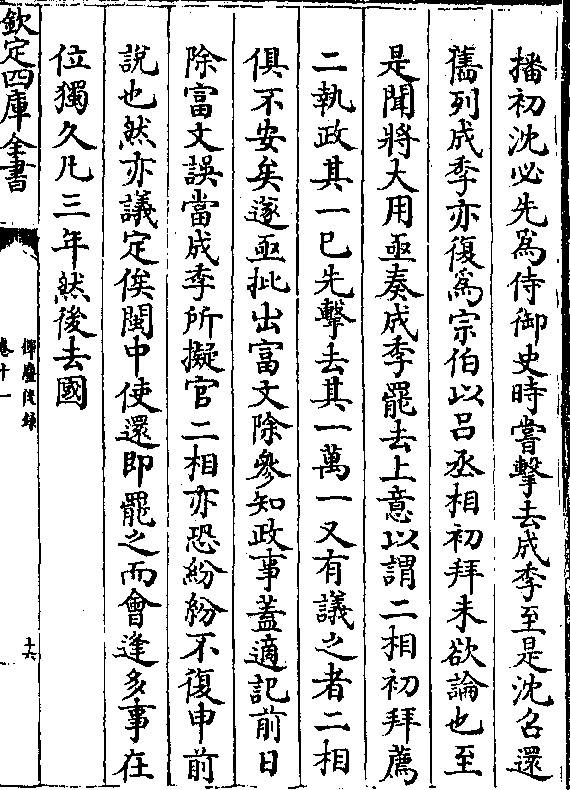 播初沈必先為侍御史時嘗擊去成季至是沈召還
舊列成季亦復為宗伯以吕丞相初拜未欲論也至
是聞將大用亟奏成季罷去上意以謂二相初拜薦
二執政其一已先擊去其一萬一又有議之者二相
俱不安矣遂亟批出富文除參知政事蓋適記前日
除富文誤當成季所擬官二相亦恐紛紛不復申前
說也然亦議定俟閩中使還即罷之而會逢多事在
位獨久凡三年然後去國
欽定四庫全書
揮麈後錄
卷十一
十六